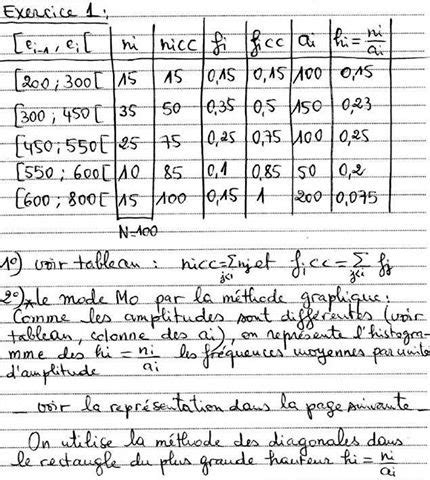 Exercice 1:
[ei-1, ei[ ni nicc fi ficc ai hi = ni/ai
[200 ; 300[ 15 15 0,15 0,15 100 0,15
[300 ; 450[ 35 50 0,35 0,5 150 0,23
[450 ; 550[ 25 75 0,25 0,75 100 0,25
[550 ; 600[ 10 85 0,1 0,85 50 0,2
[600 ; 800[ 15 100 0,15 1 200 0,075
N=100
1°) voir tableau : nicc = Σ nj et ficc = Σ fj
j≤i j≤i
2°) * le mode Mo par la méthode graphique:
Comme les amplitudes sont différentes (voir
tableau, colonne des ai), on représente l'histogra-
mme des hi = ni/ai les fréquences moyennes par unité
d'amplitude
_ voir la représentation dans la page suivante _
On utilise la méthode des diagonales dans
le rectangle du plus grande hauteur hi = ni/ai